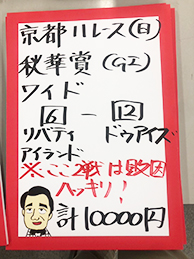 京都11レース(日)
秋華賞(GI)
ワイド
6 － 12
リバティ ドゥアイズ
アイランド
※ここ2戦は敗因
ハッキリ!
計10000円